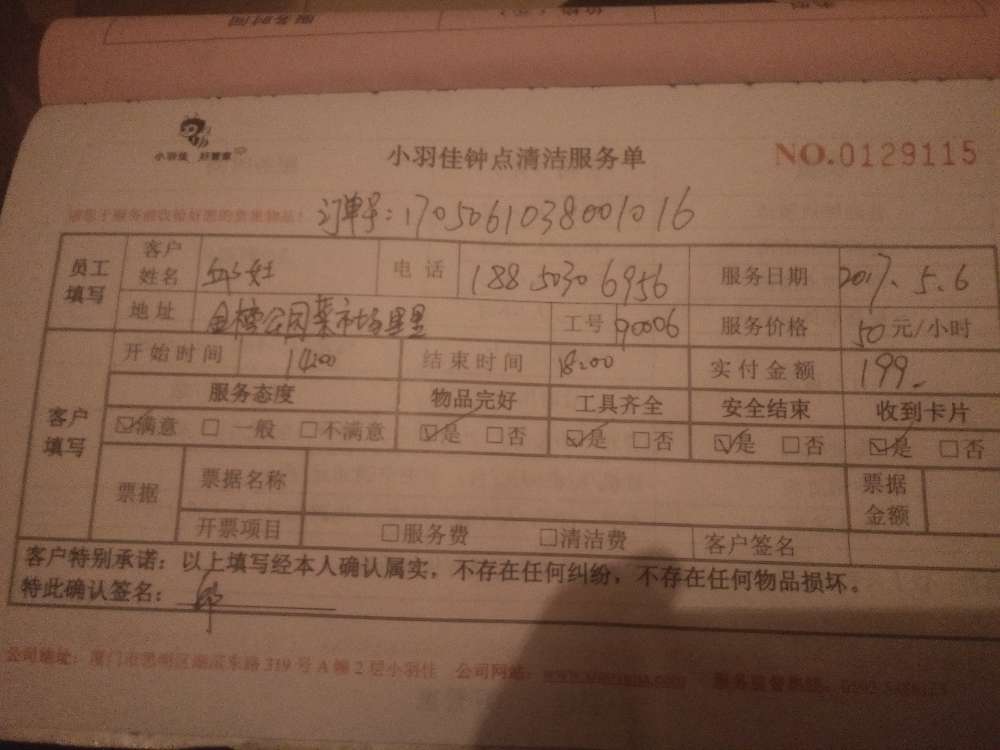 服务时间
小羽佳 好管家
小羽佳钟点清洁服务单
NO.0129115
订单号:1705061038001016
员工填写 客户姓名 电话 18850306956 服务日期 2017.5.6
地址 金榜公园菜市场 工号 90006 服务价格 50元/小时
客户填写 开始时间 14:00 结束时间 18:00 实付金额 199
服务态度 物品完好 工具齐全 安全结束 收到卡片
☑满意 □一般 □不满意 ☑是 □否 ☑是 □否 ☑是 □否 ☑是 □否
票据 票据名称 票据金额
开票项目 □服务费 □清洁费 客户签名
客户特别承诺：以上填写经本人确认属实，不存在任何纠纷，不存在任何物品损坏。
特此确认签名：邱
公司地址：厦门市思明区湖滨东路319号A幢2层小羽佳 公司网站： 服务监督热线：